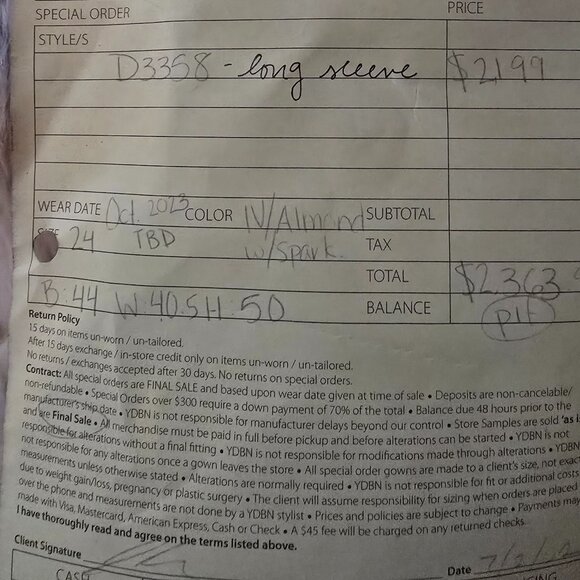 SPECIAL ORDER PRICE
STYLE/S
D3358 - long sleeve $2199
WEAR DATE Oct. 2023 COLOR IV/Almond SUBTOTAL
24 TBD w/Spark. TAX
TOTAL $2,363
B:44 W:40.5 H:50 BALANCE PIF
Return Policy
15 days on items un-worn / un-tailored.
After 15 days exchange / in-store credit only on items un-worn / un-tailored.
No returns / exchanges accepted after 30 days. No returns on special orders.
Contract: All special orders are FINAL SALE and based upon wear date given at time of sale • Deposits are non-cancelable/
non-refundable • Special Orders over $300 require a down payment of 70% of the total • Balance due 48 hours prior to the
manufacturer's ship date • YDBN is not responsible for manufacturer delays beyond our control • Store Samples are sold 'as
and are Final Sale • All merchandise must be paid in full before pickup and before alterations can be started • YDBN is not
responsible for alterations without a final fitting • YDBN is not responsible for modifications made through alterations • YDBN
not responsible for any alterations once a gown leaves the store • All special order gowns are made to a client's size, not exact
measurements unless otherwise stated • Alterations are normally required • YDBN is not responsible for fit or additional costs
due to weight gain/loss, pregnancy or plastic surgery • The client will assume responsibility for sizing when orders are placed
over the phone and measurements are not done by a YDBN stylist • Prices and policies are subject to change • Payments may
made with Visa, Mastercard, American Express, Cash or Check • A $45 fee will be charged on any returned checks.
I have thoroughly read and agree on the terms listed above.
Client Signature Date
CASH